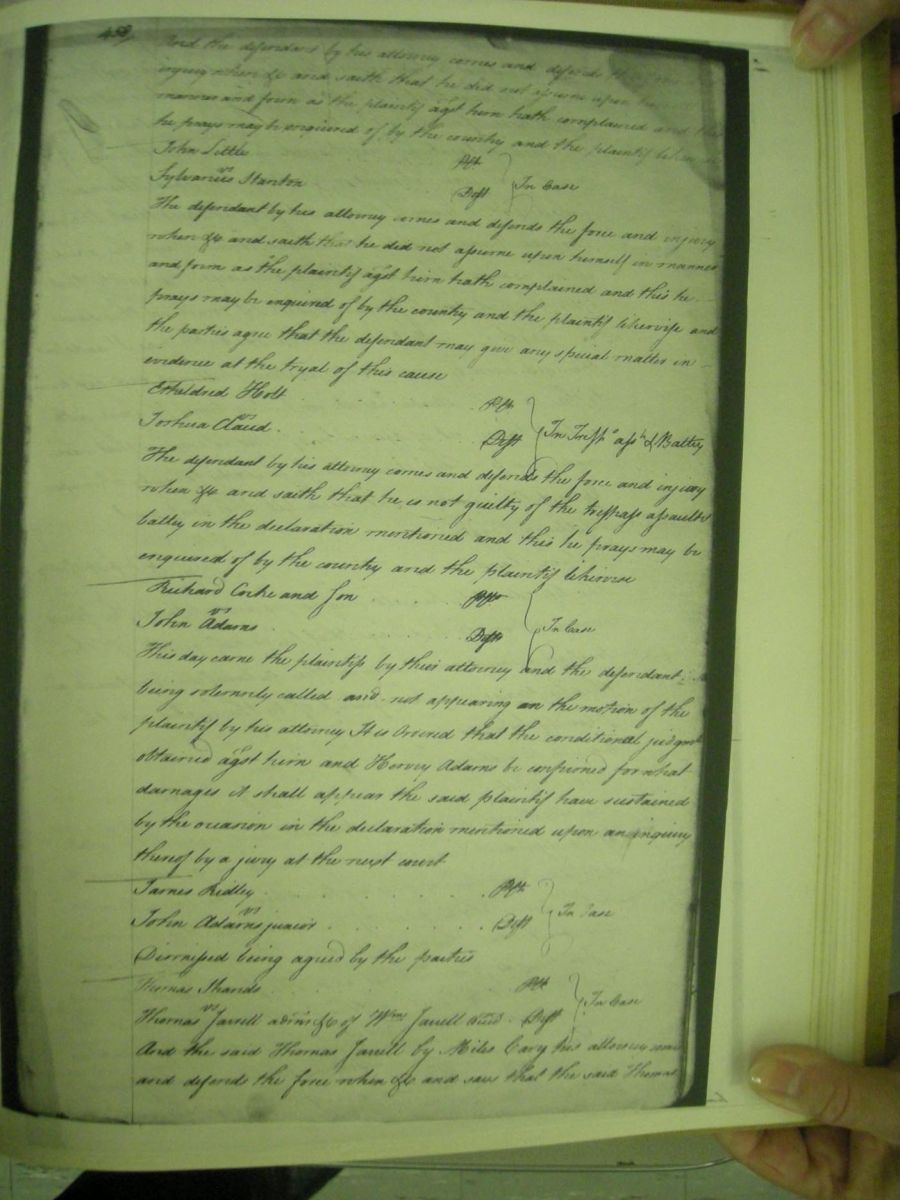 458
And the defendant by his attorney comes and defends the force
injury when &c and saith that he did not assume upon
manner and form as the plaintif agst him hath complained and this
he prays may be enquired of by the country and the plaintif likewise
John Little Plt
vs In Case
Sylvanus Stanton Deft
The defendant by his attorney comes and defends the force and injury
when &c and saith that he did not assume upon himself in manner
and form as the plaintif agst him hath complained and this he
prays may be enquired of by the country and the plaintif likewise and
the parties agree that the defendant may give any special matter in
evidence at the tryal of this cause
Etheldred Holt Plt
vs In Tresps asst & Battry
Joshua Claud Deft
The defendant by his attorney comes and defends the force and injury
when &c and saith that he is not guilty of the trespass assault &
battry in the declaration mentioned and this he prays may be
enquired of by the country and the plaintif likewise
Richard Cocke and Son Plts
vs In Case
John Adams Deft
This day came the plaintifs by their attorney and the defendant
being solemnly called and not appearing on the motion of the
plaintif by his attorney It is Ordered that the conditional judgmt
obtained agst him and Hervey Adams be confirmed for what
damages it shall appear the said plaintif have sustained
by the occasion in the declaration mentioned upon an inquiry
thereof by a jury at the next court
James Ridley Plt
vs In Case
John Adams junior Deft
Dismissed being agreed by the parties
Thomas Shands Plt
vs In Case
Thomas Jarrell admr &c of Wm Jarrell decd Deft
And the said Thomas Jarrell by Miles Cary his attorney comes
and defends the force when &c and says that the said Thomas